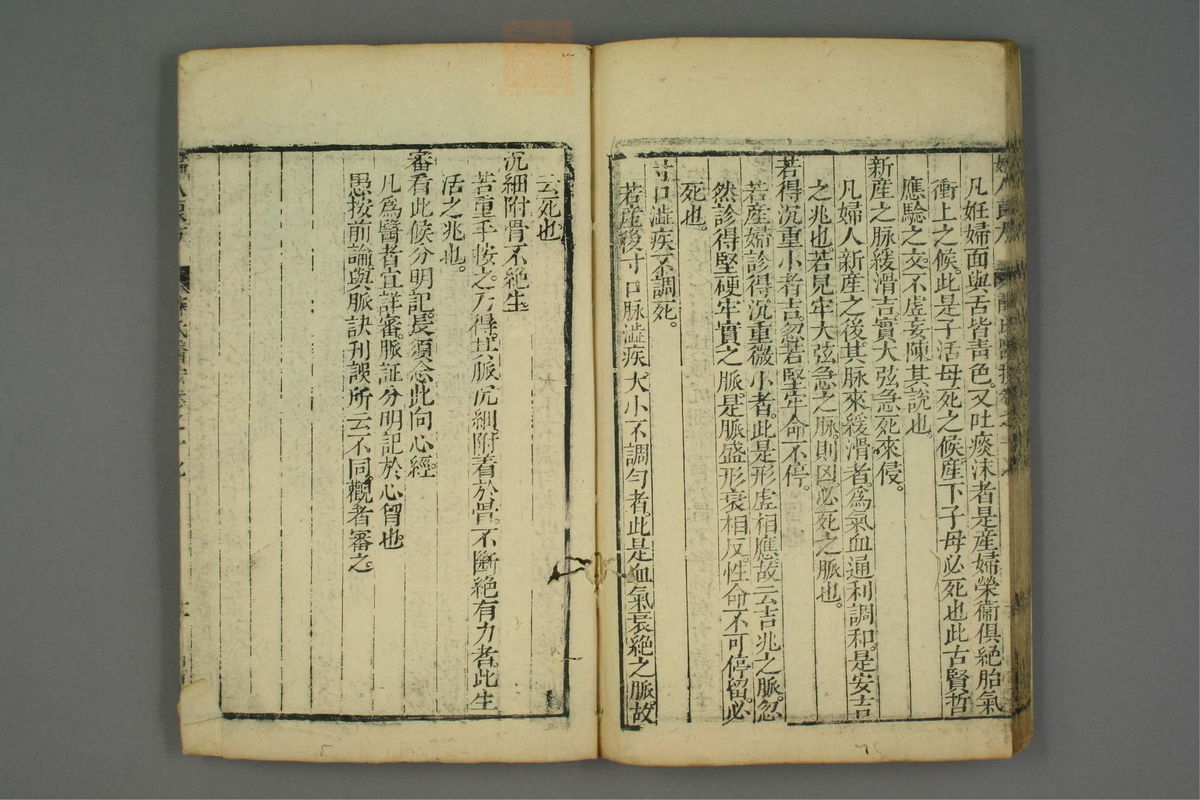 婦人良方
薛氏醫按卷之十
凡妊婦面與舌皆青色又吐痰沫者是産婦榮衞俱絶胎氣
衝上之候此是子活母死之候産下子母必死也此古賢哲
應驗之文不虚妄陳其說也
新産之脉緩滑吉實大弦急死來侵
凡婦人新産之後其脉來緩滑者爲氣血通利調和是安吉
之兆也若見牢大弦急之脉則凶必死之脉也
若得沉重小者吉忽若堅牢命不停
若産婦診得沉重微小者此是形虚相應故云吉兆之脉忽
然診得堅硬牢實之脉是脉盛形衰相反性命不可停留必
死也
寸口澁疾不調死
若産後寸口脉澁疾大小不調勻者此是血氣衰絶之脉故
云死也
沉細附骨不絶生
若重手按之乃得其脉沉細附着於骨不斷絶有力者此生
活之兆也
審看此候分明記長須念此向心經
凡爲醫者宜詳審脈証分明記於心留也
愚按前論與脈訣刊誤所云不同觀者審之